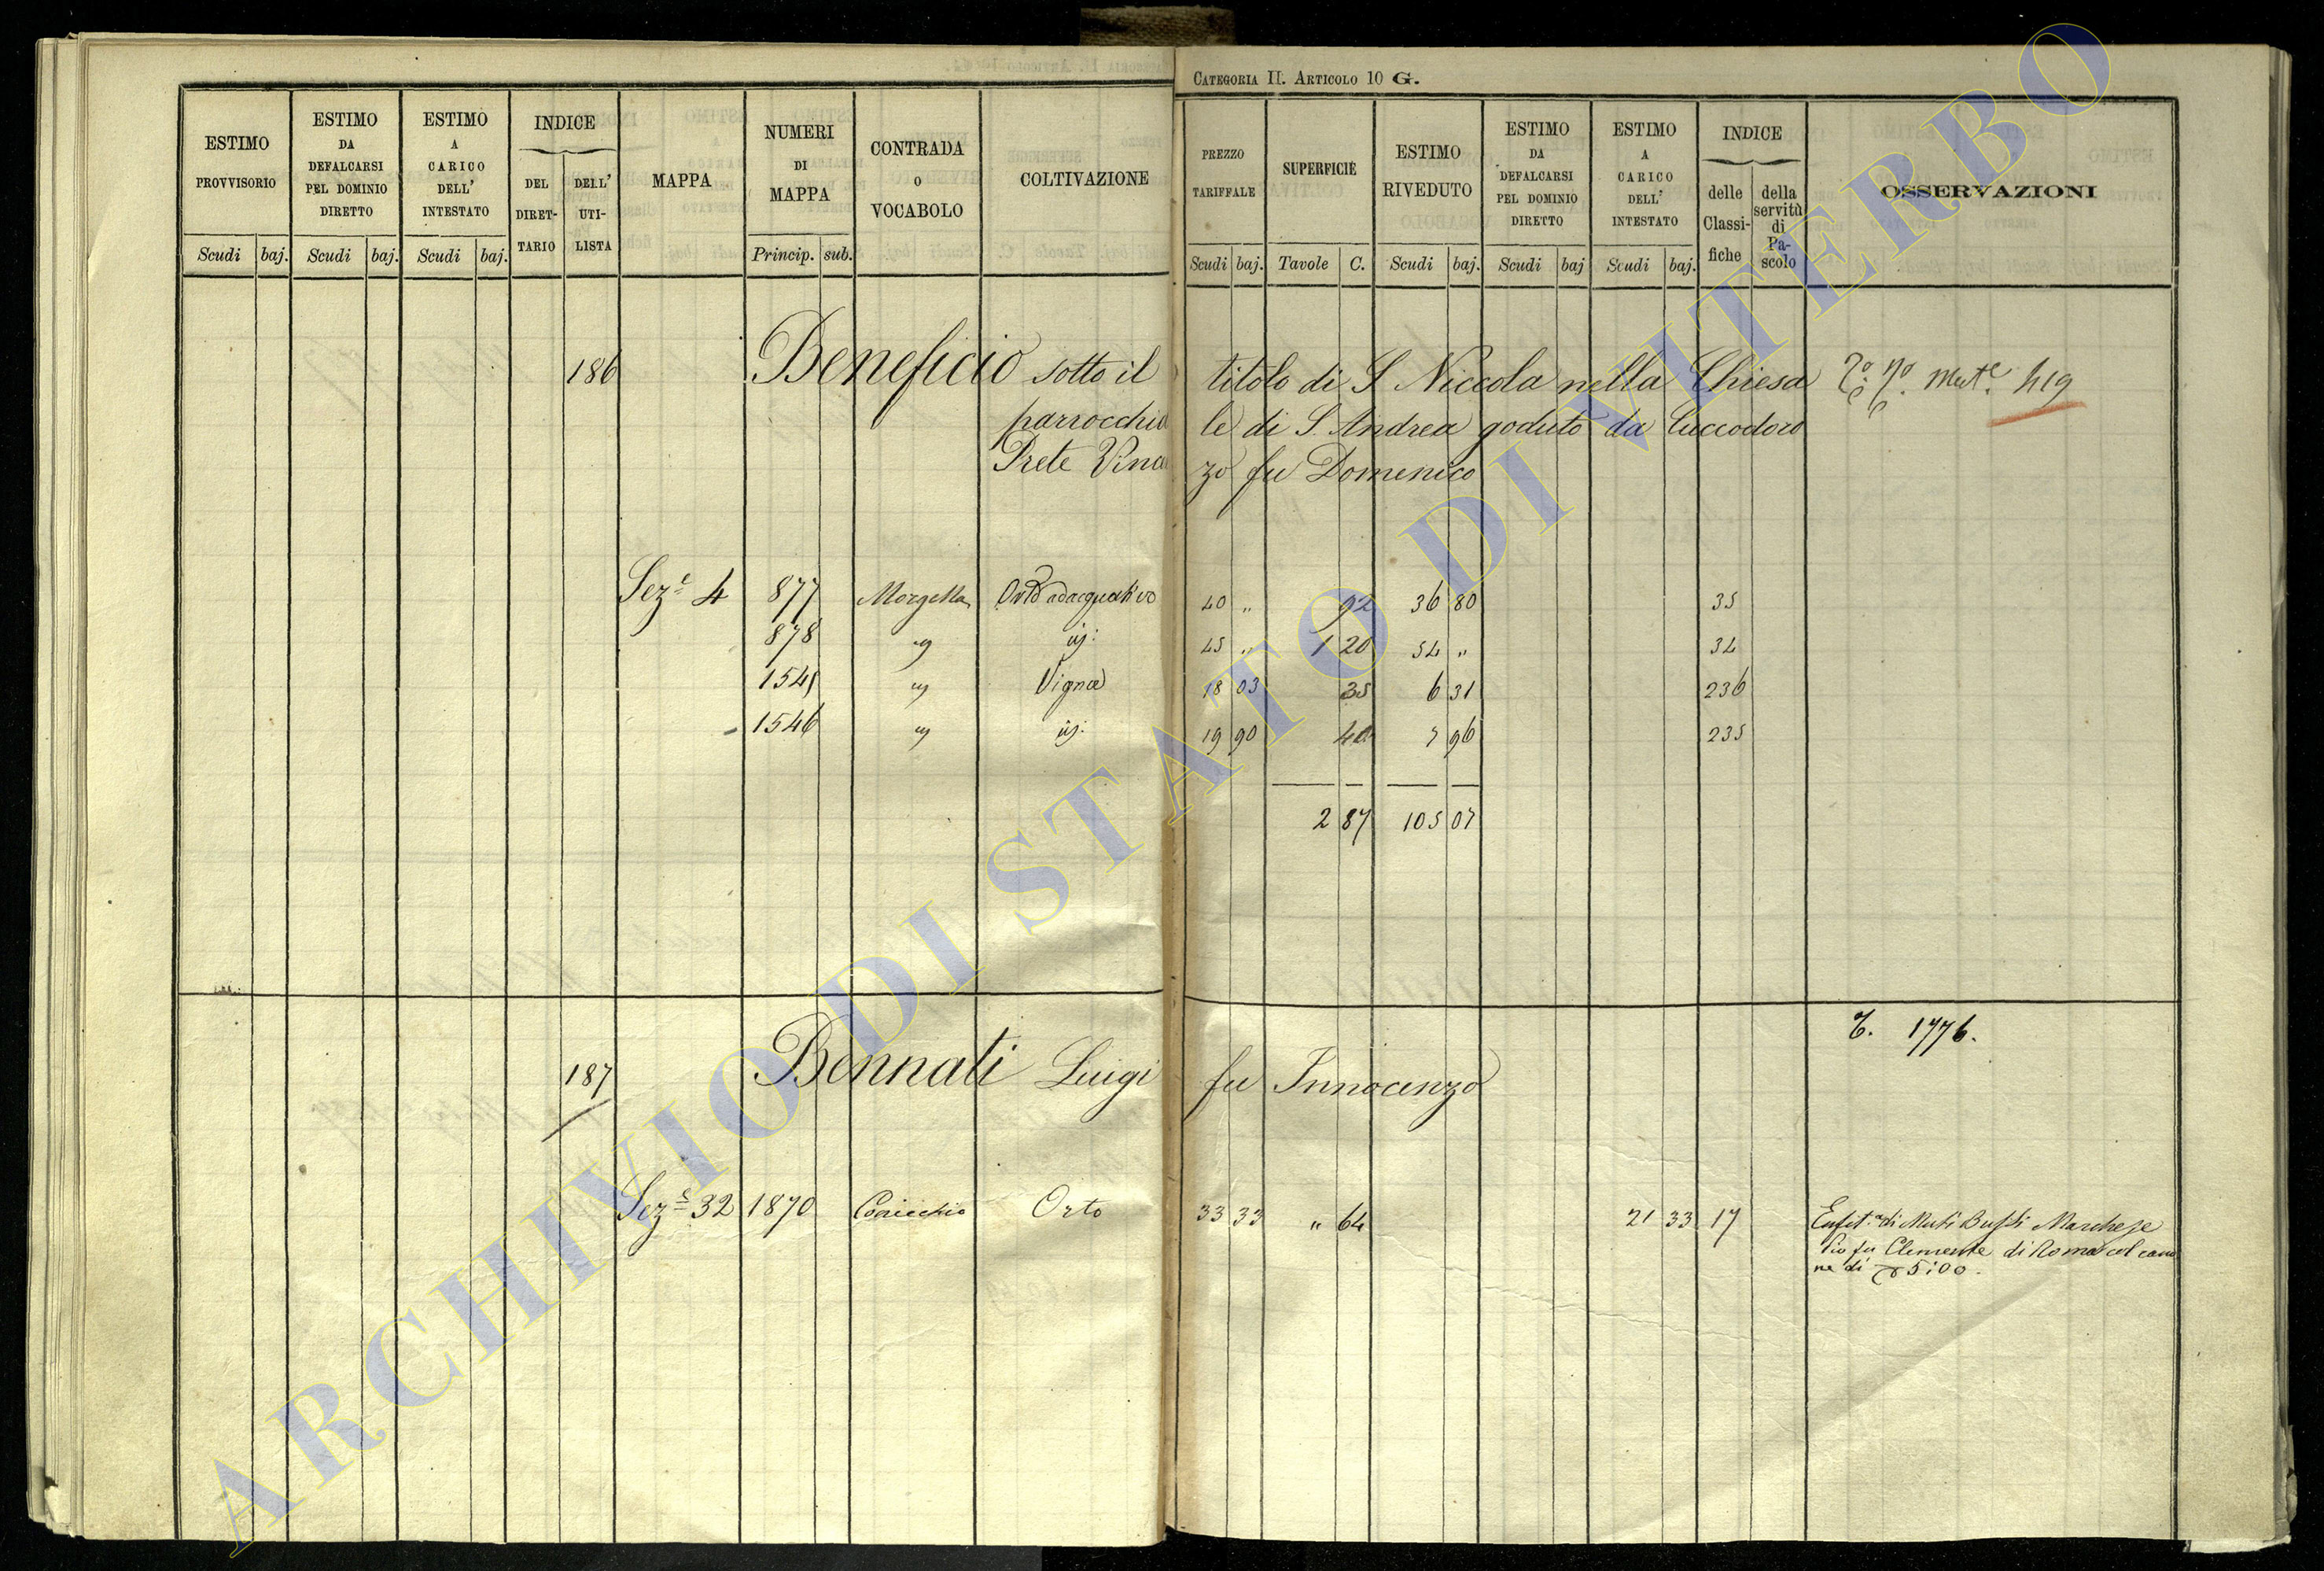 CATEGORIA II. ARTICOLO 10 G.
ESTIMO PROVVISORIO
Scudi baj.
ESTIMO DA DEFALCARSI PEL DOMINIO DIRETTO
Scudi baj.
ESTIMO A CARICO DELL' INTESTATO
Scudi baj.
INDICE
DEL DIRET-TARIO
DELL' UTI-LISTA
MAPPA
NUMERI DI MAPPA
Princip. sub.
CONTRADA O VOCABOLO
COLTIVAZIONE
PREZZO TARIFFALE
Scudi baj.
SUPERFICIE
Tavole C.
ESTIMO RIVEDUTO
Scudi baj.
ESTIMO DA DEFALCARSI PEL DOMINIO DIRETTO
Scudi baj
ESTIMO A CARICO DELL' INTESTATO
Scudi baj.
INDICE
delle Classi-fiche
della servitù di Pa-scolo
OSSERVAZIONI
186 Beneficio sotto il titolo di S Niccola nella Chiesa 419
parrocchia le di S. Andrea goduto da
Prete zo fu Domenico
Sez.e 4 877 Orto adacquativo 40 " 92 36 80 35
878 45 " 1 20 54 " 34
1545 Vigna 18 03 35 6 31 236
1546 19 90 40 7 96 235
2 87 105 07
1776.
187 Bennati Luigi fu Innocenzo
Sez.e 32 1870 Orto 33 33 " 64 21 33 17 Enfit.a di Muti Bussi Marchese
Pio fu Clemente di Roma col cano
ne di 5:00.
ARCHIVIO DI STATO DI VITERBO